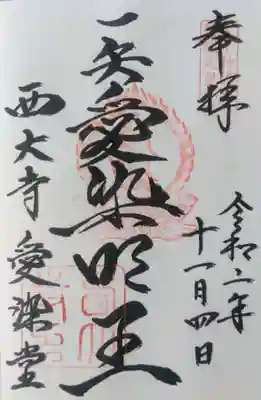 奉拝
令和二年
十一月四日
愛染明王
西大寺愛染堂